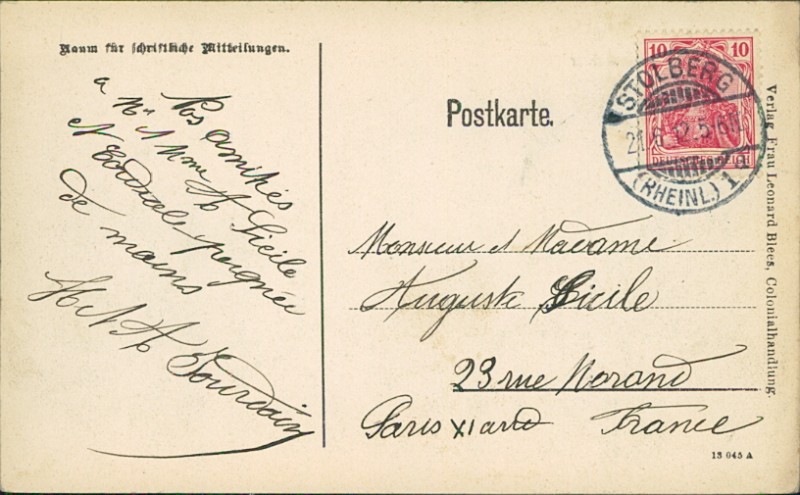 Raum für schriftliche Mitteilungen.
Nos amitiés
a Mr & Mme A Sicile
& Cordiale poignée
de mains
H & A Jourdain
Postkarte.
10 10
DEUTSCHES REICH
STOLBERG
21.6.12.5-6N
(RHEINL.) 1 d
Monsieur et Madame
Auguste Sicile
23 rue Morand
Paris XI arrd
France
Verlag Frau Leonard Blees, Colonialhandlung.
13 045 A